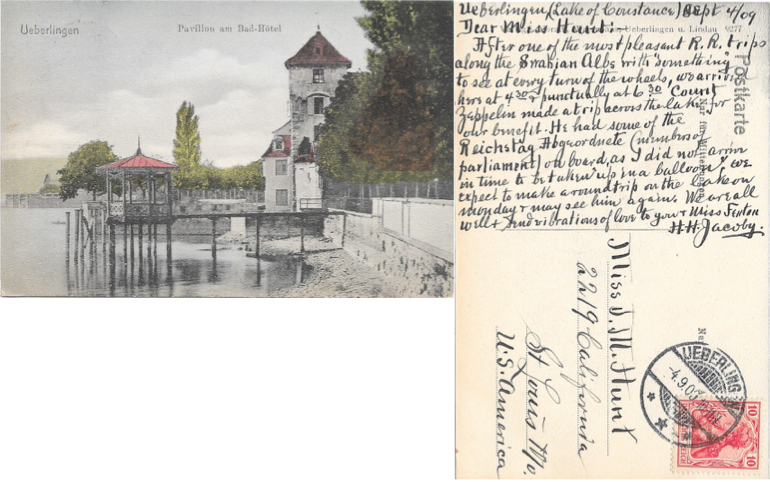 Ueberlingen
Pavillon am Bad-Hôtel
Ueberlingen (Lake of Constance) Sept 4/09
Dear Miss Hunt:-
Ueberlingen u. Lindau 9277
After one of the most pleasant R.R. trips
along the Swabian Albs with "something
to see at every turn of the wheels, we arrived
here at 4 30 & punctually at 6 30 Count
Zeppelin made a trip across the lake for
our benefit. He had some of the
Reichstag Abgeordnete (members of
parliament) on board, as I did not arrive
in time to be taken up in a balloon, we
expect to make a round trip on the Lake on
monday & may see him again. We are all
well & send vibrations of love to you & Miss Fenton
H.H. Jacoby.
Postkarte
Nur für
Miss J. M. Hunt
2219 California
St Louis Mo.
U.S. America
UEBERLINGEN
4.9.09
10 10
REICH